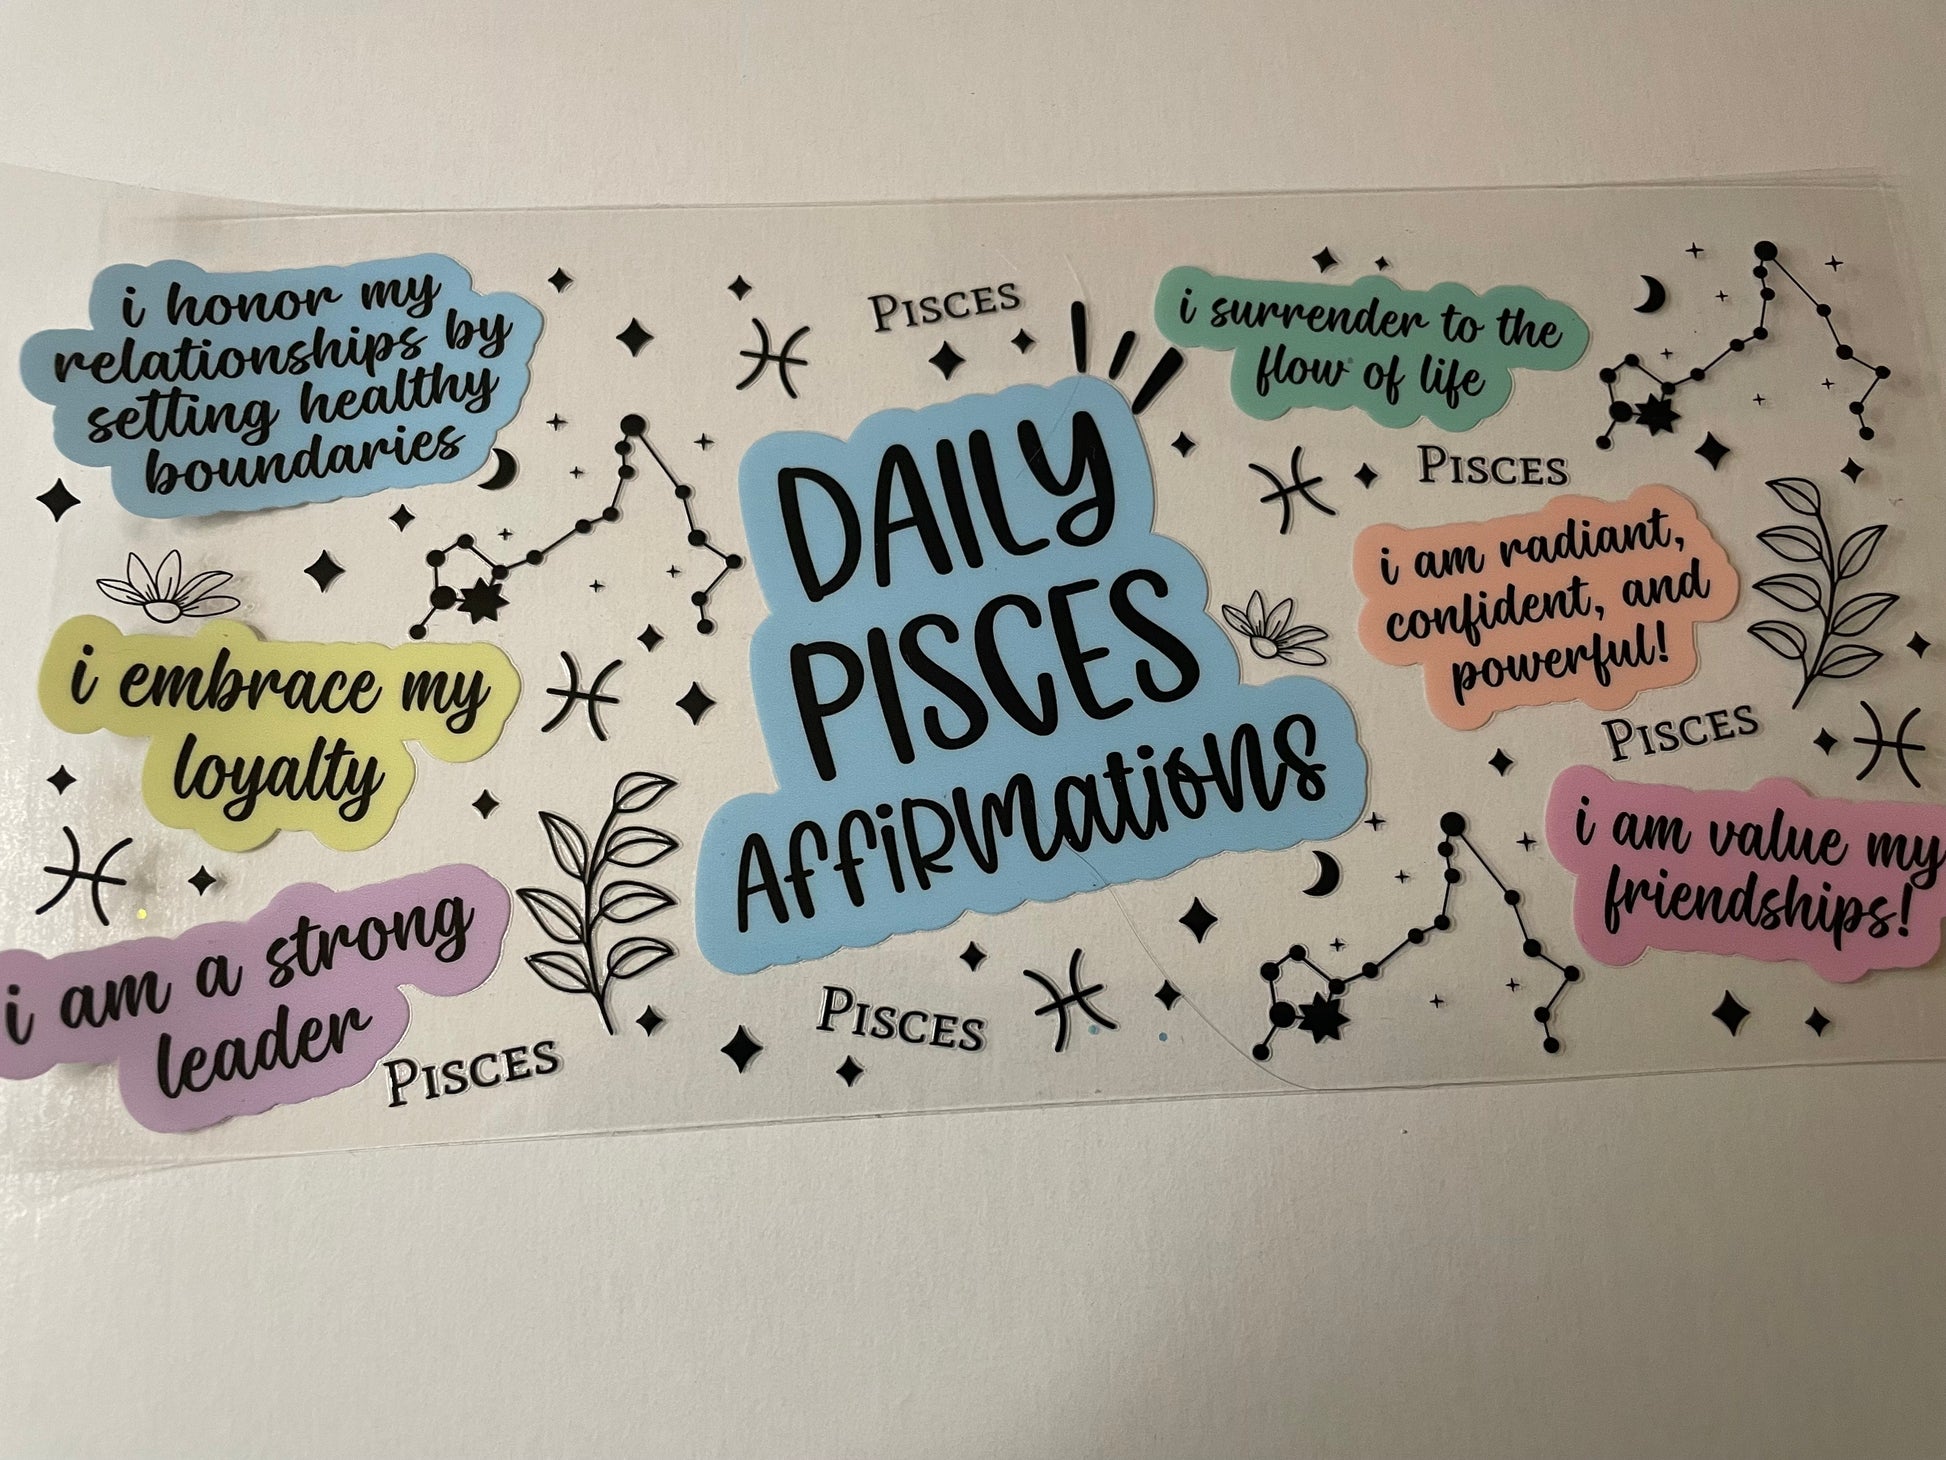 i honor my
relationships by
setting healthy
boundaries
i embrace my
loyalty
i am a strong
leader
PISCES
PISCES
DAILY
PISCES
AFFiRMATiONS
PISCES
i surrender to the
flow of life
PISCES
i am radiant,
confident, and
powerful!
PISCES
i am value my
friendships!